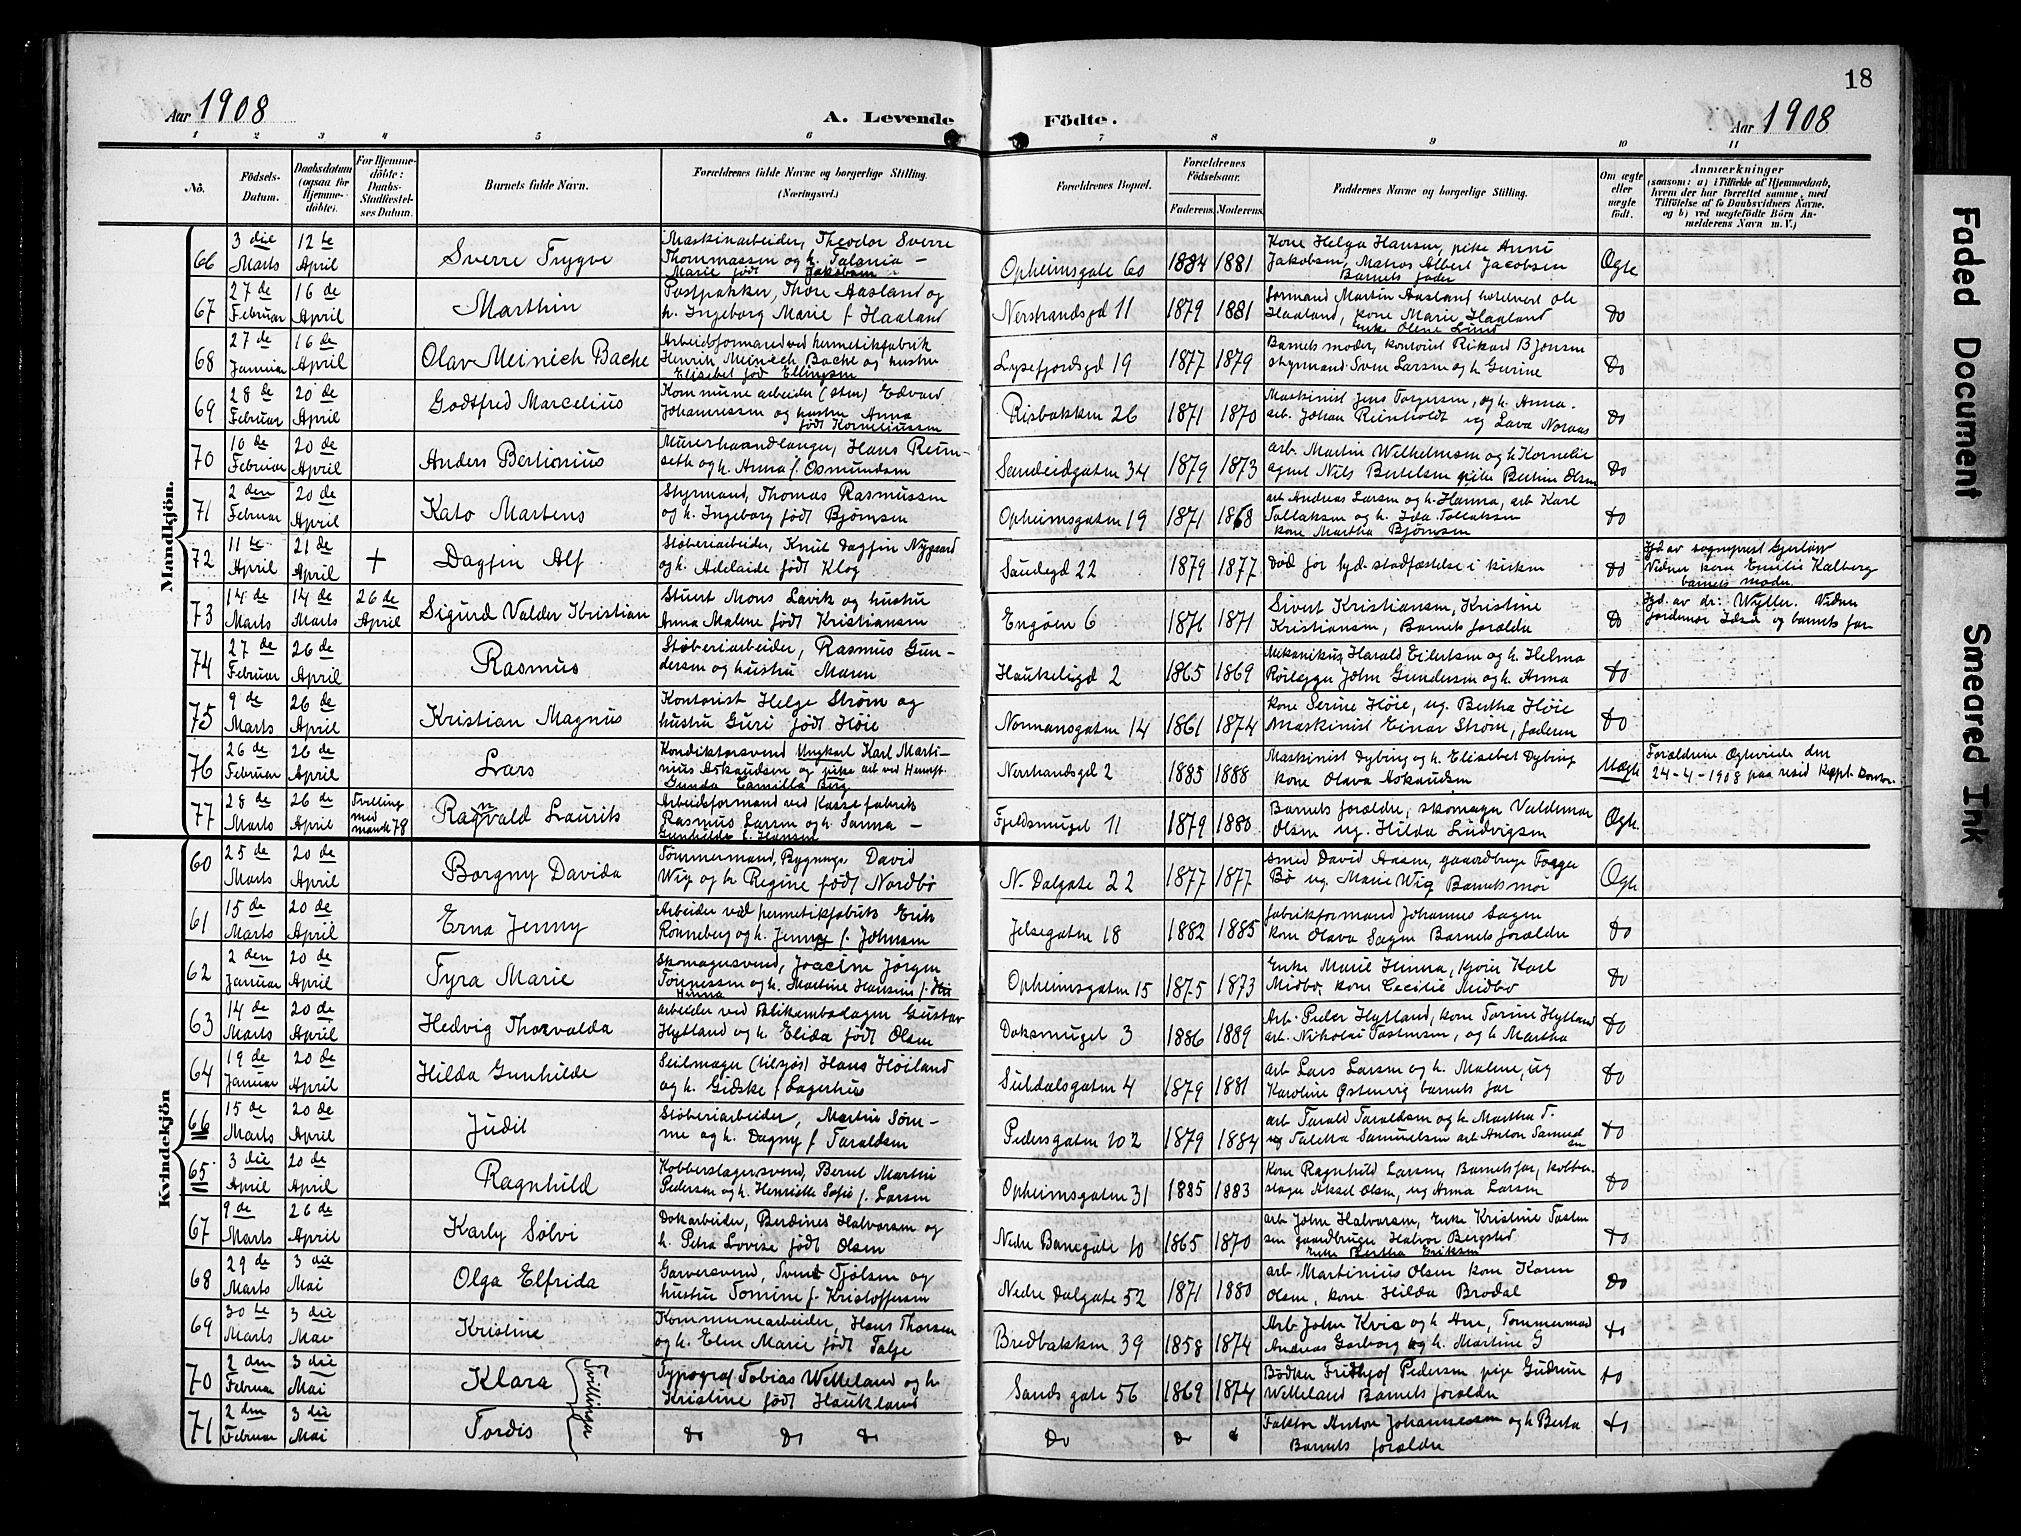 18
Aar 1908
A. Levende
Födte.
Aar 1908
1 2 3 4 5 6 7 8 9 10 11
No.
Födsels-
Datum.
Daabsdatum
(ogsaa for
Hjemme-
döbte).
For Hjemme-
döbte:
Daabs-
Stadfæstel-
ses Datum.
Barnets fulde Navn.
Forældrenes fulde Navne og borgerlige Stilling.
(Næringsvei.)
Forældrenes Bopæl.
Forældrenes
Födselsaar.
Faderens. Moderens.
Faddernes Navne og borgerlige Stilling.
Om ægte
eller
uægte
født.
Anmærkninger
(saasom: a) i Tilfælde af Hjemmedaab,
hvem der har forrettet samme, med
Tilföielse af to Daabsvidners Navne,
og b) ved uægtefödte Börn An-
melderens Navn m. V.)
Mandkjön.
66
3 die
Marts
12 te
April
Sverre Trygve
Maskinarbeider, Theodor Sverre
Thommassen og h. Talania
Marie født Jakobsen
Opheimsgate 60
1884 1881
Kone Helga Hansen, pike Anna
Jakobsen, Matros Albert Jacobsen
Barnets fader
Ægte
67
27 de
Februar
16 de
April
Marthin
Postpakker, Thore Aasland og
h. Ingeborg Marie f Haaland
Nerstrandsgd 11
1879 1881
Formand Martin Aasland hotelvert Ole
Haaland, kone Marie Haaland
Enke Olene Lund
Do
68
27 de
Januar
16 de
April
Olav Meinich Backe
Arbeidsformand ved hermetikfabrik
Henrik Meinich Backe og hustru
Elisebet født Ellingsen
Lysefjordsgd 19
1877 1879
Barnets moder, kontorist Rikard Bjønsen
styrmand Sven Larsen og h. Gurine
Do
69
28 de
Februar
20 de
April
Godtfred Marcelius
Kommune arbeider (sten) Edvard
Johannessen og hustru Anna
født Korneliussen
Risbakken 26
1871 1870
Maskinist Jens Torgersen, og h. Anna
arb. Johan Reinholdt ug Lava Noraas
Do
70
16 de
Februar
20 de
April
Anders Bertinius
Murerhaandlanger, Hans Reim-
seth og h. Anna f. Osmundsen
Sandeidgaten 34
1879 1873
arb. Martin Wilhelmsen og h Kornelie
agent Nils Bertelsen pike Bertine Olsen
Do
71
2 den
Februar
20 de
April
Kato Martens
Styrmand, Thomas Rasmussen
og h. Ingeborg født Bjørnsen
Opheimsgaten 19
1871 1868
arb Andreas Larsen og h. Hanna, arb Karl
Tollaksen og h. Ida Tollaksen
kone Martha Bjørnsen
Do
72
11 te
April
21 de
April
+
Dagfin Alf
Støberiarbeider, Knut Dagfin Nygaard
og h. Adelaide født Klog
Saudegd 22
1879 1877
Død før hjd. stadfæstelse i kirken
Do
Hjd av sogneprest Gjerløw
Vidner kone Emilie Kalberg
barnets moder.
73
14 de
Marts
14 de
Marts
26 de
April
Sigurd Valder Kristian
Stuert Mons Lavik og hustru
Anna Malene født Kristiansen
Engøen 6
1876 1871
Sivert Kristiansen, Kristine
Kristiansen, Barnets forældre
Do
Hjd. av dr. Wyller. Vidner
jordemor og barnets far
74
27 de
Februar
26 de
April
Rasmus
Støberiarbeider, Rasmus Gun-
dersen og hustru Maren
Haukeligd 2
1865 1869
Mekanikus Harald Eilertsen og h. Helma
Rørlægger John Gundersen og h. Anna
Do
75
9 de
Marts
26 de
April
Kristian Magnus
Kontorist Helge Strøm og
hustru Guri født Høie
Normansgaten 14
1861 1874
kone Serine Høie, ug. Bertha Høie
Maskinist Einar Strøm, faderen
Do
76
26 de
Februar
26 de
April
Lars
Konditorsvend Ungkarl Karl Marti-
nius Askaudsen og pike arb ved Hermft.
Gunda Camilla Berg
Nerstrandsgd 2
1885 1888
Maskinist Dybing og h. Elisebet Dybing
kone Olava Askaudsen
Uægte
Forældrene Ægteviede den
24-4-1908 paa resid Kapt. kontor.
77
28 de
Marts
26 de
April
Tvilling
med
mandk 78
Ragnvald Laurits
Arbeidsformand ved Kassefabrik
Rasmus Larsen og h. Sanna
Gunhilde f. Hansen
Fjeldsmuget 11
1879 1880
Barnets forældre, skomager Valdemar
Olsen ug. Hilda Ludvigsen
Ægte.
Kvindekjön
60
25 de
Marts
20 de
April
Borgny Davida
Tømmermand, Bygnings David
Wig og h Regine født Nordbø
N. Dalgate 22
1877 1877
Smed David Aasen, gaardbruger Torger
Bø ug. Marie Wig Barnets mor
Ægte
61
15 de
Marts
20 de
April
Erna Jenny
Arbeider ved hermetikfabrik Erik
Rønneberg og h. Jenny f. Johnsen
Jelsegaten 18
1882 1885
fabrikformand Johannes Sagen
kone Olava Sagen Barnets forældre
Do
62
2 den
Januar
20 de
April
Tyra Marie
Skomagersvend, Joacim Jørgen
Tønnessen og h. Martine Hansine f.
Hinna
Opheimsgaten 15
1875 1873
Enke Marie Hinna, kjører Karl
Midbø, kone Cecilie Midbø
Do
63
14 de
Marts
20 de
April
Hedvig Thorvalda
arbeider ved Blikemballagen Gustav
Hytland og h. Elida født Olsen
Doksmuget 3
1886 1889
Arb. Peder Hytland, kone Torine Hytland
arb. Nikolai Tostensen, og h Martha
Do
64
19 de
Januar
20 de
April
Hilda Gunhilde
Seilmager (tilsjøs) Hans Høiland
og h. Gidske f Lagerhus
Suldalsgaten 4
1879 1881
arb Lars Larsen og h. Malene, ug
Karoline Østenvig barnets far
Do
66
15 de
Marts
20 de
April
Judit
Støberiarbeider, Martin Søm-
me og h. Dagny f Taraldsen
Pedersgaten 102
1879 1884
arb Tarald Taraldsen og h. Martha T.
ug Taletta Samuelsen arb Anton Samuel
sen
Do
65
3 die
April
20 de
April
Ragnhild
Kobberslagersvend, Bernt Martin
Pedersen og h. Henriette Sofie f. Larsen
Opheimsgaten 31
1885 1883
Kone Ragnhild Larsen, Barnets far, kobber-
slager Aksel Olsen, ug Anna Larsen
Do
67
9 de
Marts
26 de
April
Karly Solvi
Dokarbeider, Berdines Halvorsen og
h. Petra Lovise født Olsen
Nedre Banegate 10
1865 1870
arb John Halvorsen, Enke Kristine Tosten
sen gaardbruger Halvor Bergsted
Enke Bertha Eriksen
Do
68
29 de
Marts
3 die
Mai
Olga Elfrida
Garversvend, Svend Tjølsen og
hustru Tomine f. Kristoffersen
Nedre Dalgate 52
1871 1880
arb Martinius Olsen kone Karen
Olsen, kone Hilda Brodal
Do
69
30 te
Marts
3 die
Mai
Kristine
Kommunearbeider, Hans Thorsen
og h. Elen Marie født Talje
Bredbakken 39
1858 1874
Arb John Kvis og h Ane, Tømmermand
Andreas Garborg og h. Martine G
Do
70
2 den
Februar
3 die
Mai
Klara
Tvillinger
Typograf Tobias Wetteland og h
Kristine født Haukland
Sands gate 56
1869 1874
Bødker Fridthjof Pedersen pige Gudrun
Wetteland Barnets forældre
Do
71
2 den
Februar
3 die
Mai
Tordis
Do Do Do
Do
Do
Faktor Anton Johannessen og h Berta
Barnets forældre
Do
Faded Document
Smeared Ink